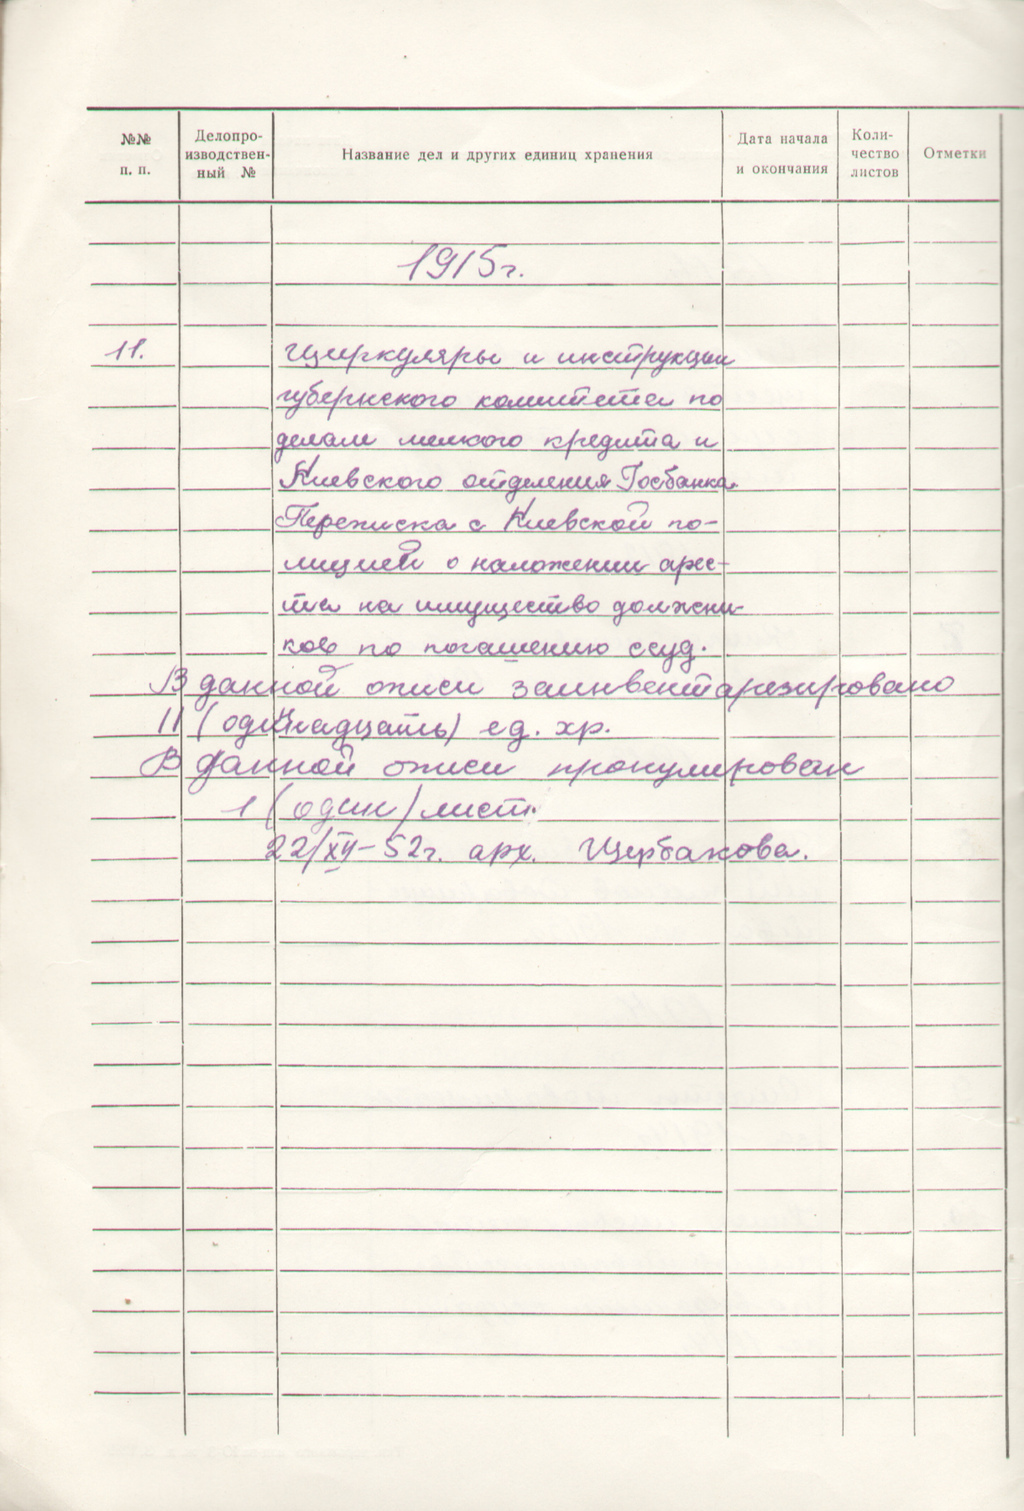 №№ п. п.
Делопро-
изводствен-
ный №
Название дел и других единиц хранения
Дата начала
и окончания
Коли-
чество
листов
Отметки
1915 г.
11. Циркуляры и инструкции
губернского комитета по
делам мелкого кредита и
Киевского отделения Госбанка.
Переписка с Киевской по-
лицией о наложении арес-
та на имущество должни-
ков по погашению ссуд.
В данной описи заинвентаризировано
11 (одинадцать) ед. хр.
В данной описи пронумерован
1 (один) лист.
22/XII-52г. арх. Щербакова.